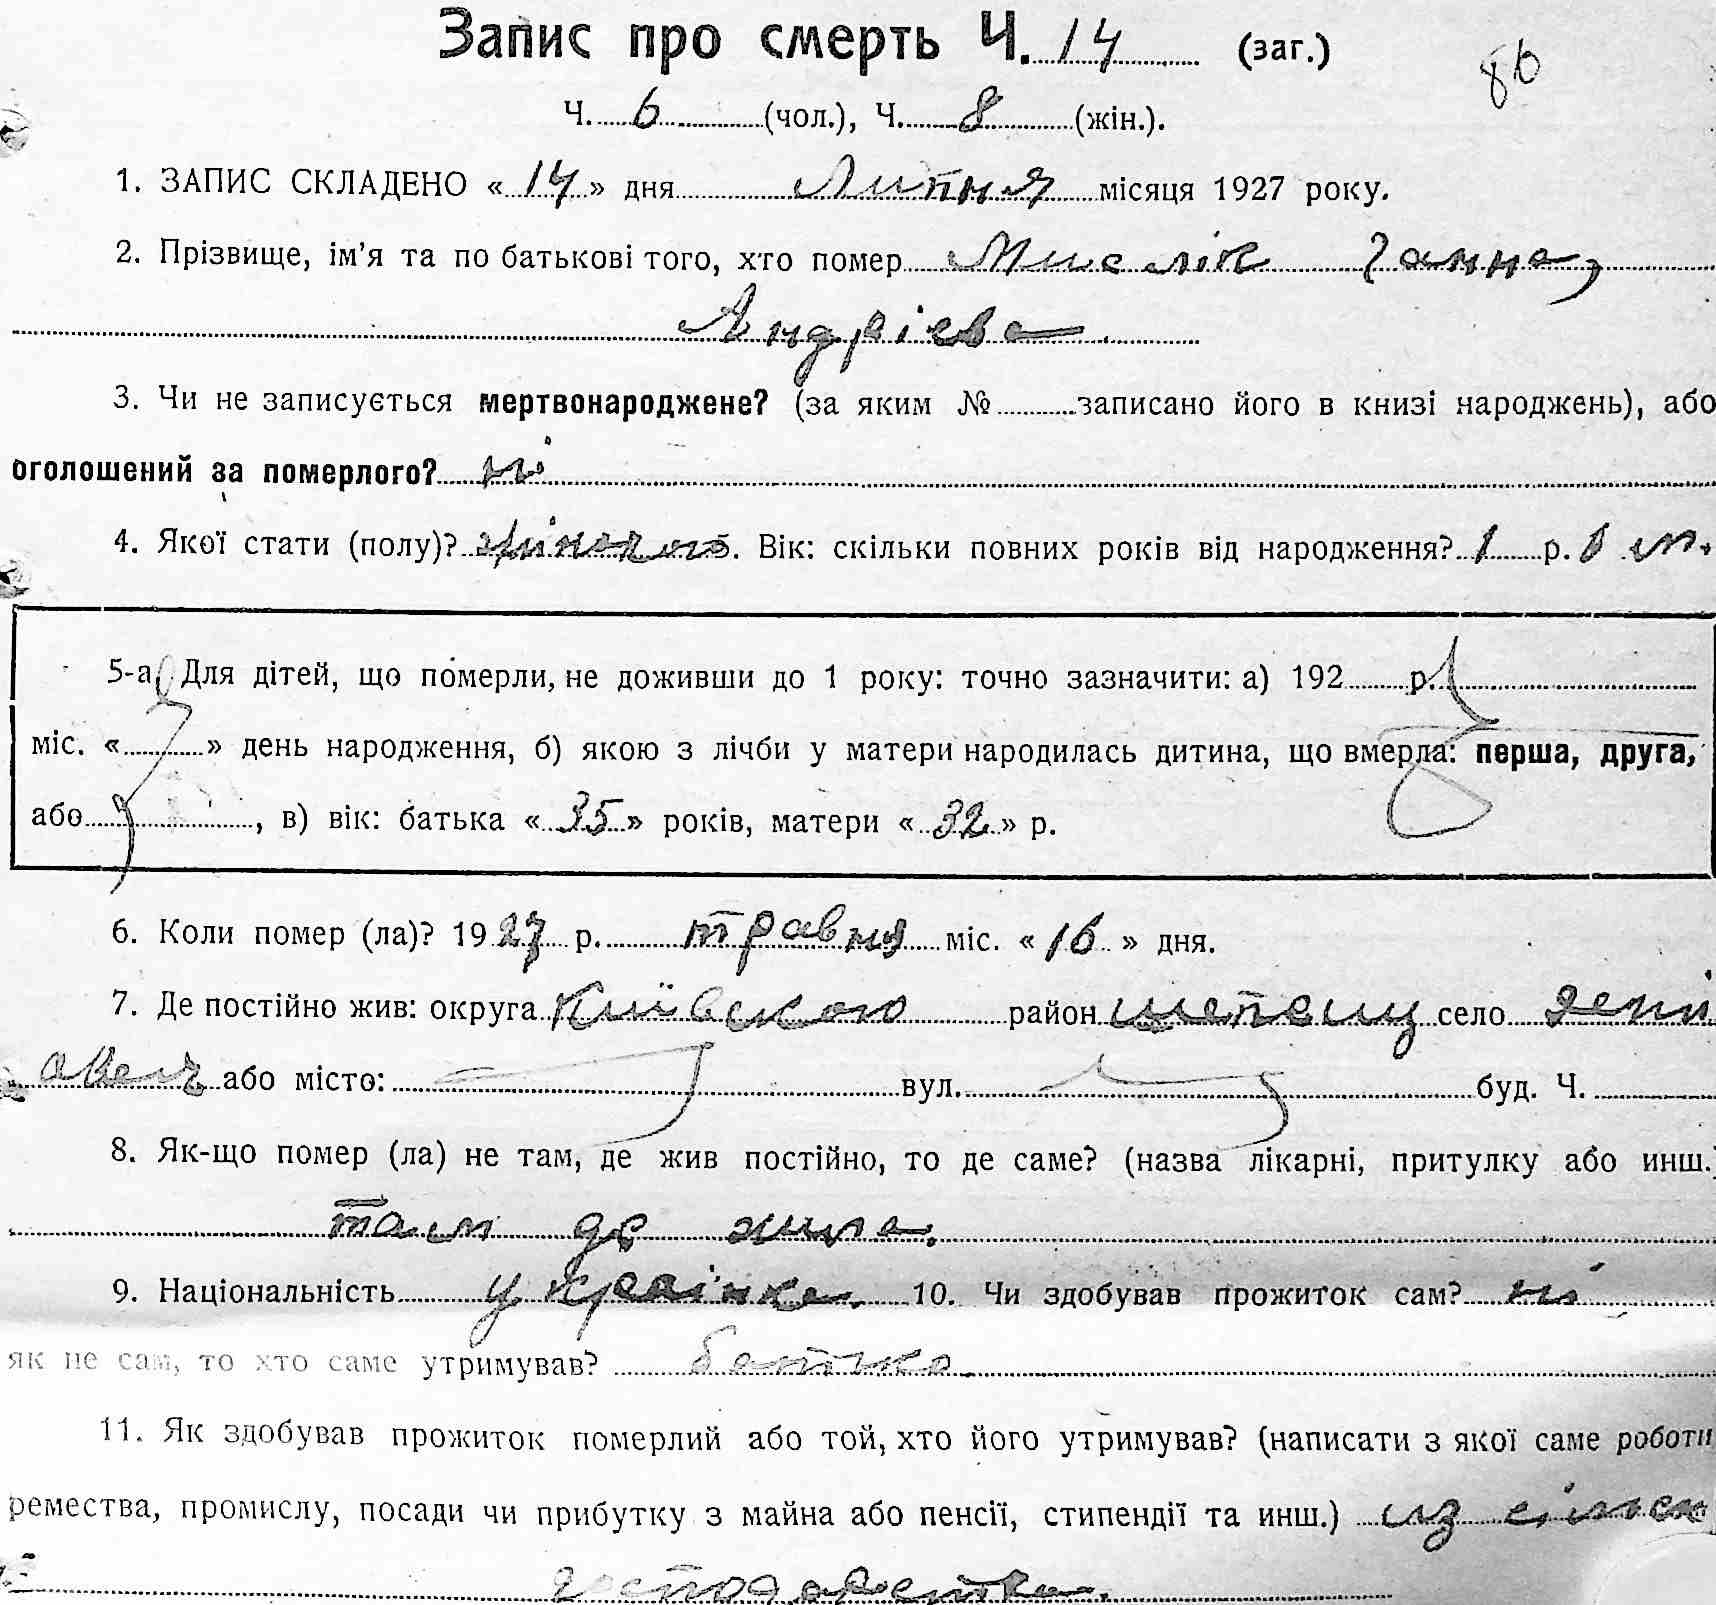 Запис про смерть Ч. 14 (заг.) 86
Ч. 6 (чол.), Ч. 8 (жін.).
1. ЗАПИС СКЛАДЕНО « 14 » дня Липня місяця 1927 року.
2. Прізвище, ім'я та по батькові того, хто помер Мислік Ганна,
Андрієва
3. Чи не записується мертвонароджене? (за яким № записано його в книзі народжень), або
оголошений за померлого? ні
4. Якої стати (полу)? жіночого. Вік: скільки повних років від народження? 1 р. м.
5-а Для дітей, що померли, не доживши до 1 року: точно зазначити: а) 192 р.
міс. « » день народження, б) якою з лічби у матери народилась дитина, що вмерла: перша, друга,
або , в) вік: батька « 35 » років, матери « 32 » р.
6. Коли помер (ла)? 1927 р. травня міс. « 16 » дня.
7. Де постійно жив: округа Київскою район село
або місто: вул. буд. Ч.
8. Як-що помер (ла) не там, де жив постійно, то де саме? (назва лікарні, притулку або инш.)
там де жила.
9. Національність українка. 10. Чи здобував прожиток сам? ні
як не сам, то хто саме утримував? батько
11. Як здобував прожиток померлий або той, хто його утримував? (написати з якої саме роботи
ремества, промислу, посади чи прибутку з майна або пенсії, стипендії та инш.) из сільск
господарства.